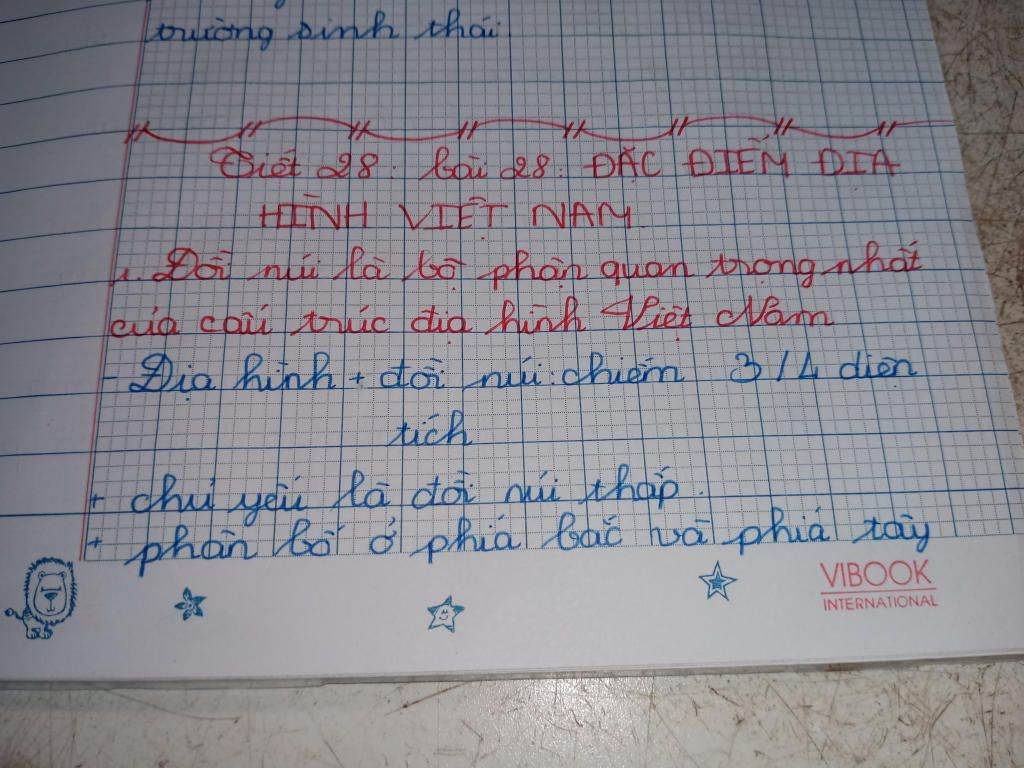 trường sinh thái
Tiết 28: bài 28: ĐẶC ĐIỂM ĐỊA
HÌNH VIỆT NAM
1. Đồi núi là bộ phận quan trọng nhất
của cấu trúc địa hình Việt Nam
- Địa hình + đồi núi: chiếm 3/4 diện
tích
+ chủ yếu là đồi núi thấp.
+ phân bố ở phía bắc và phía tây
VIBOOK
INTERNATIONAL